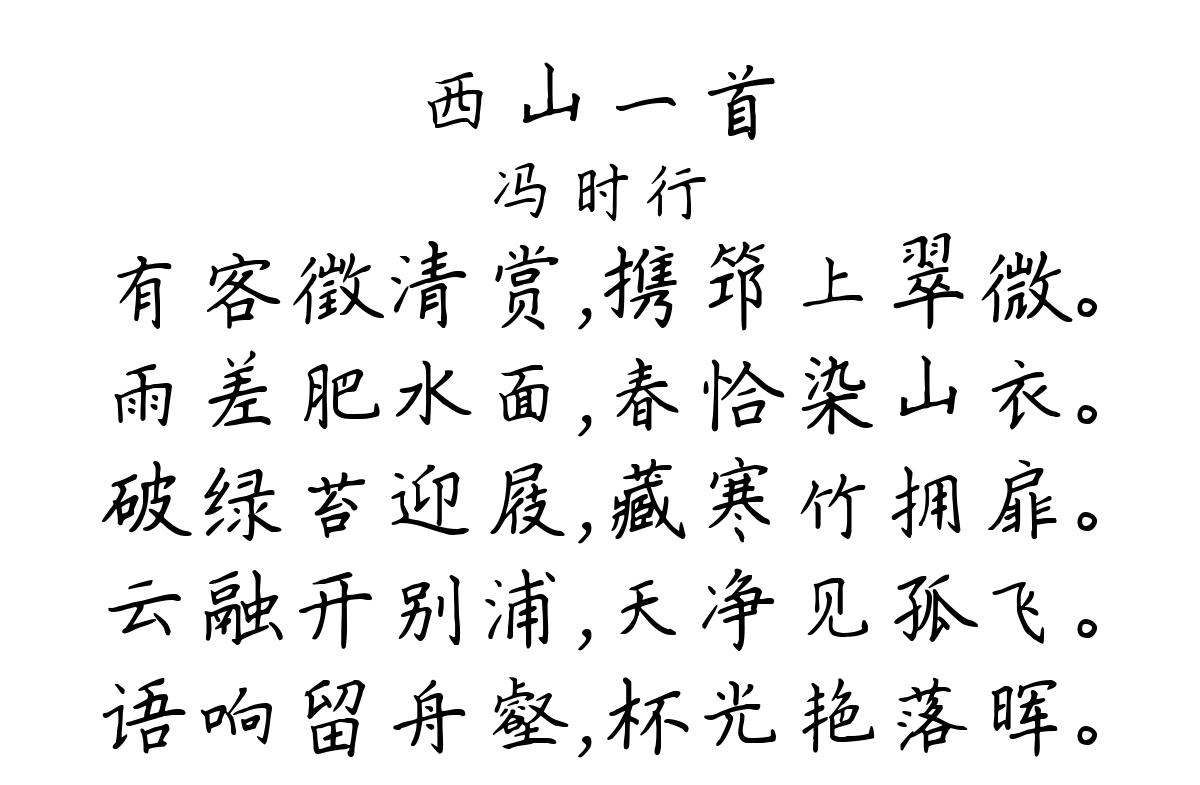 西山一首
冯时行
有客徵清赏,携筇上翠微。
雨差肥水面,春恰染山衣。
破绿苔迎屐,藏寒竹拥扉。
云融开别浦,天净见孤飞。
语响留舟壑,杯光艳落晖。